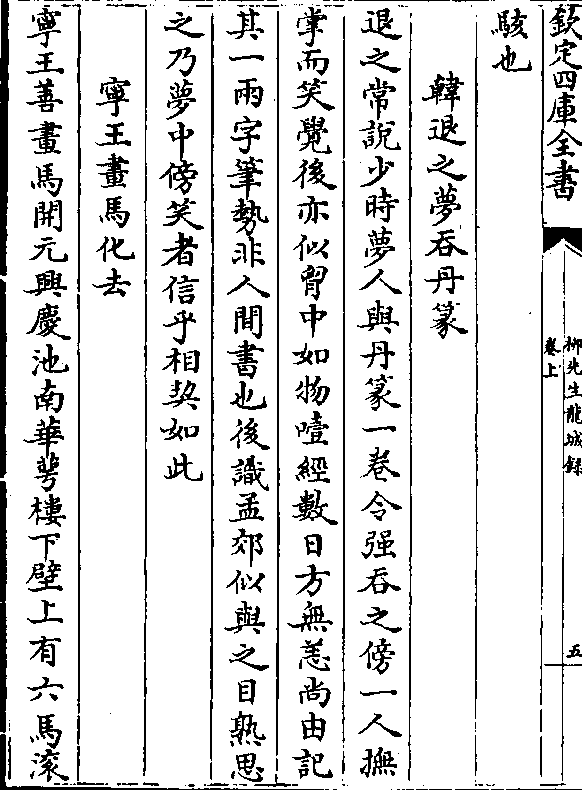 欽定四庫全書
柳先生龍城錄
卷上
五
駭也
韓退之夢吞丹篆
退之常說少時夢人與丹篆一卷令强吞之傍一人撫
掌而笑覺後亦似胷中如物噎經數日方無恙尚由記
其一兩字筆勢非人間書也後識孟郊似與之目熟思
之乃夢中傍笑者信乎相契如此
寧王畫馬化去
寧王善畫馬開元興慶池南華萼樓下壁上有六馬滚